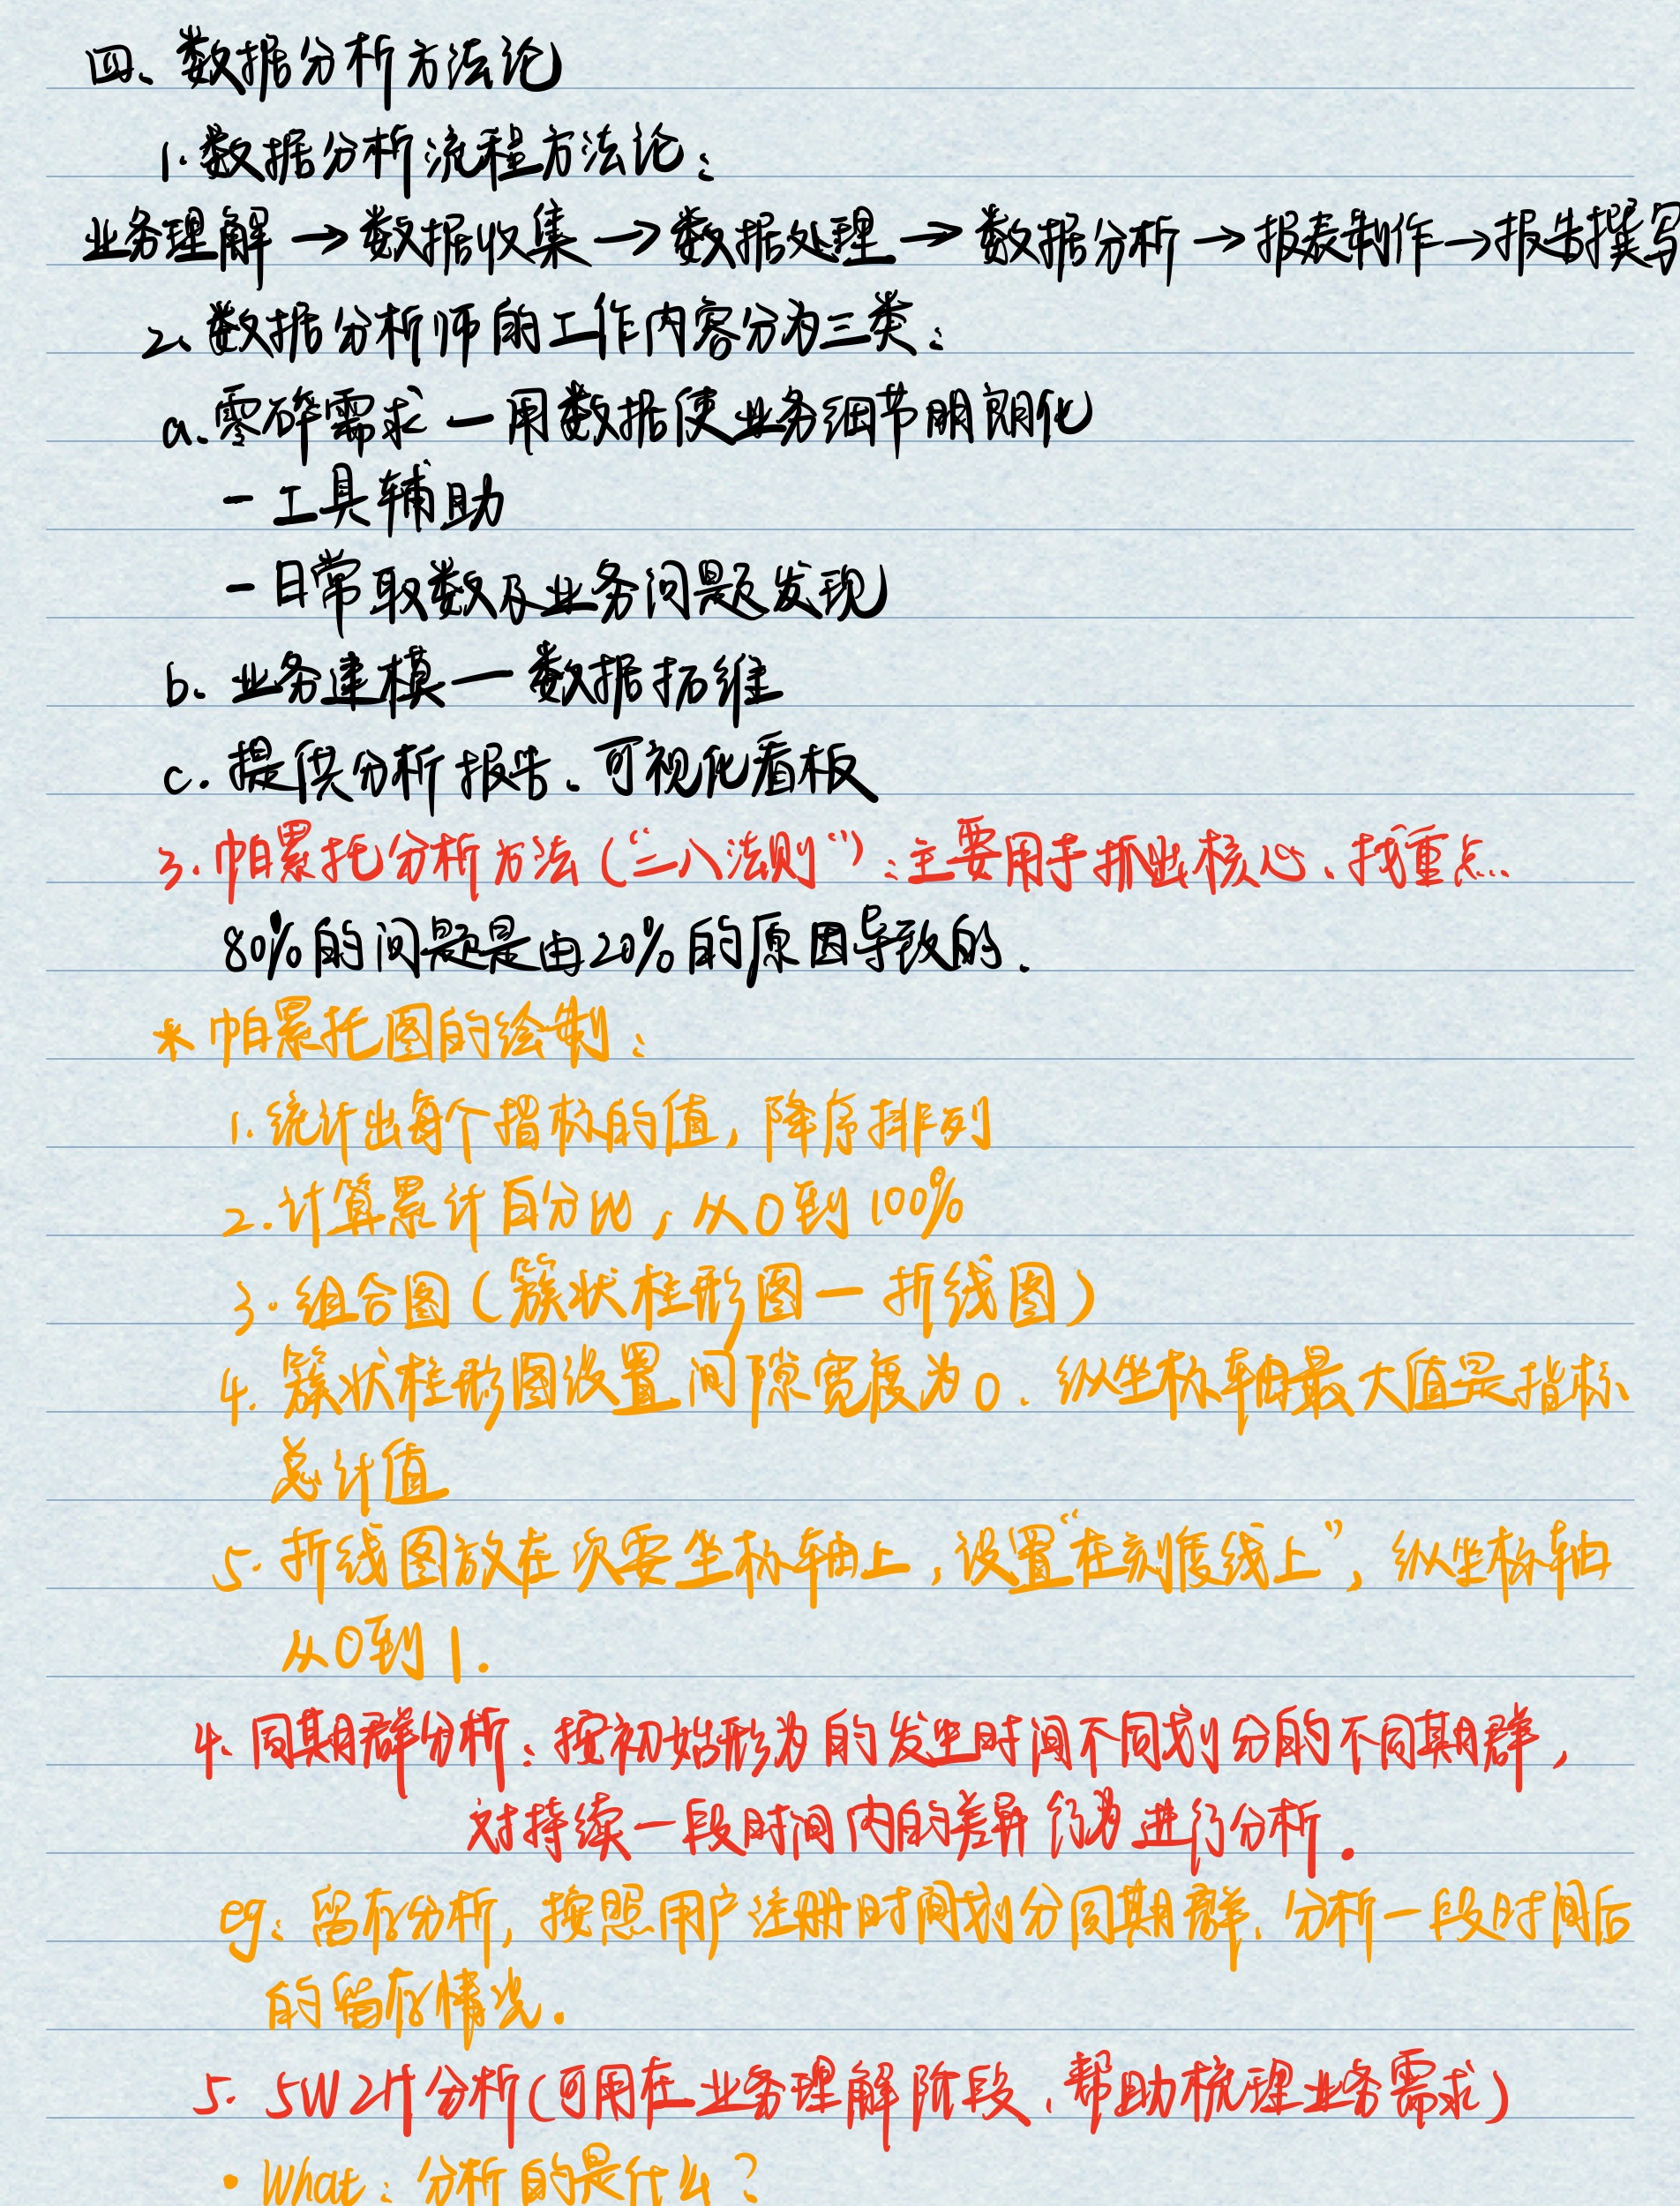 四、数据分析方法论
1.数据分析流程方法论：
业务理解→数据收集→数据处理→数据分析→报表制作→报告撰写
2、数据分析师的工作内容分为三类：
a.零碎需求—用数据使业务细节明朗化
-工具辅助
-日常取数及业务问题发现
b.业务建模—数据拓维
c.提供分析报告、可视化看板
3.帕累托分析方法（“二八法则”）：主要用于抓出核心、找重点...
80%的问题是由20%的原因导致的.
*帕累托图的绘制：
1.统计出每个指标的值，降序排列
2.计算累计百分比，从0到100%
3.组合图（簇状柱形图—折线图）
4.簇状柱形图设置间隙宽度为0.纵坐标轴最大值是指标
总计值
5.折线图放在次要坐标轴上，设置“在刻度线上”，纵坐标轴
从0到1.
4.同期群分析：按初始形为的发生时间不同划分的不同期群，
对持续一段时间内的差异行为进行分析.
eg：留存分析，按照用户注册时间划分同期群，分析一段时间后
的留存情况.
5.5W2H分析（可用在业务理解阶段、帮助梳理业务需求）
•What：分析的是什么？